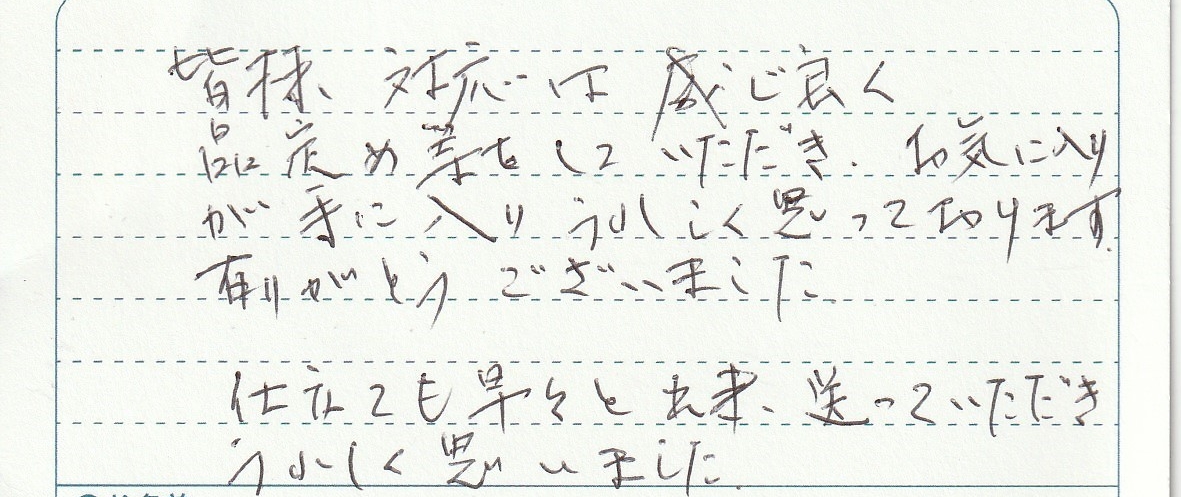 皆様、対応は感じ良く
品定め等をしていただき、お気に入り
が手に入りうれしく思っております。
有りがとうございました。
仕立ても早々と出来、送っていただき
うれしく思いました。